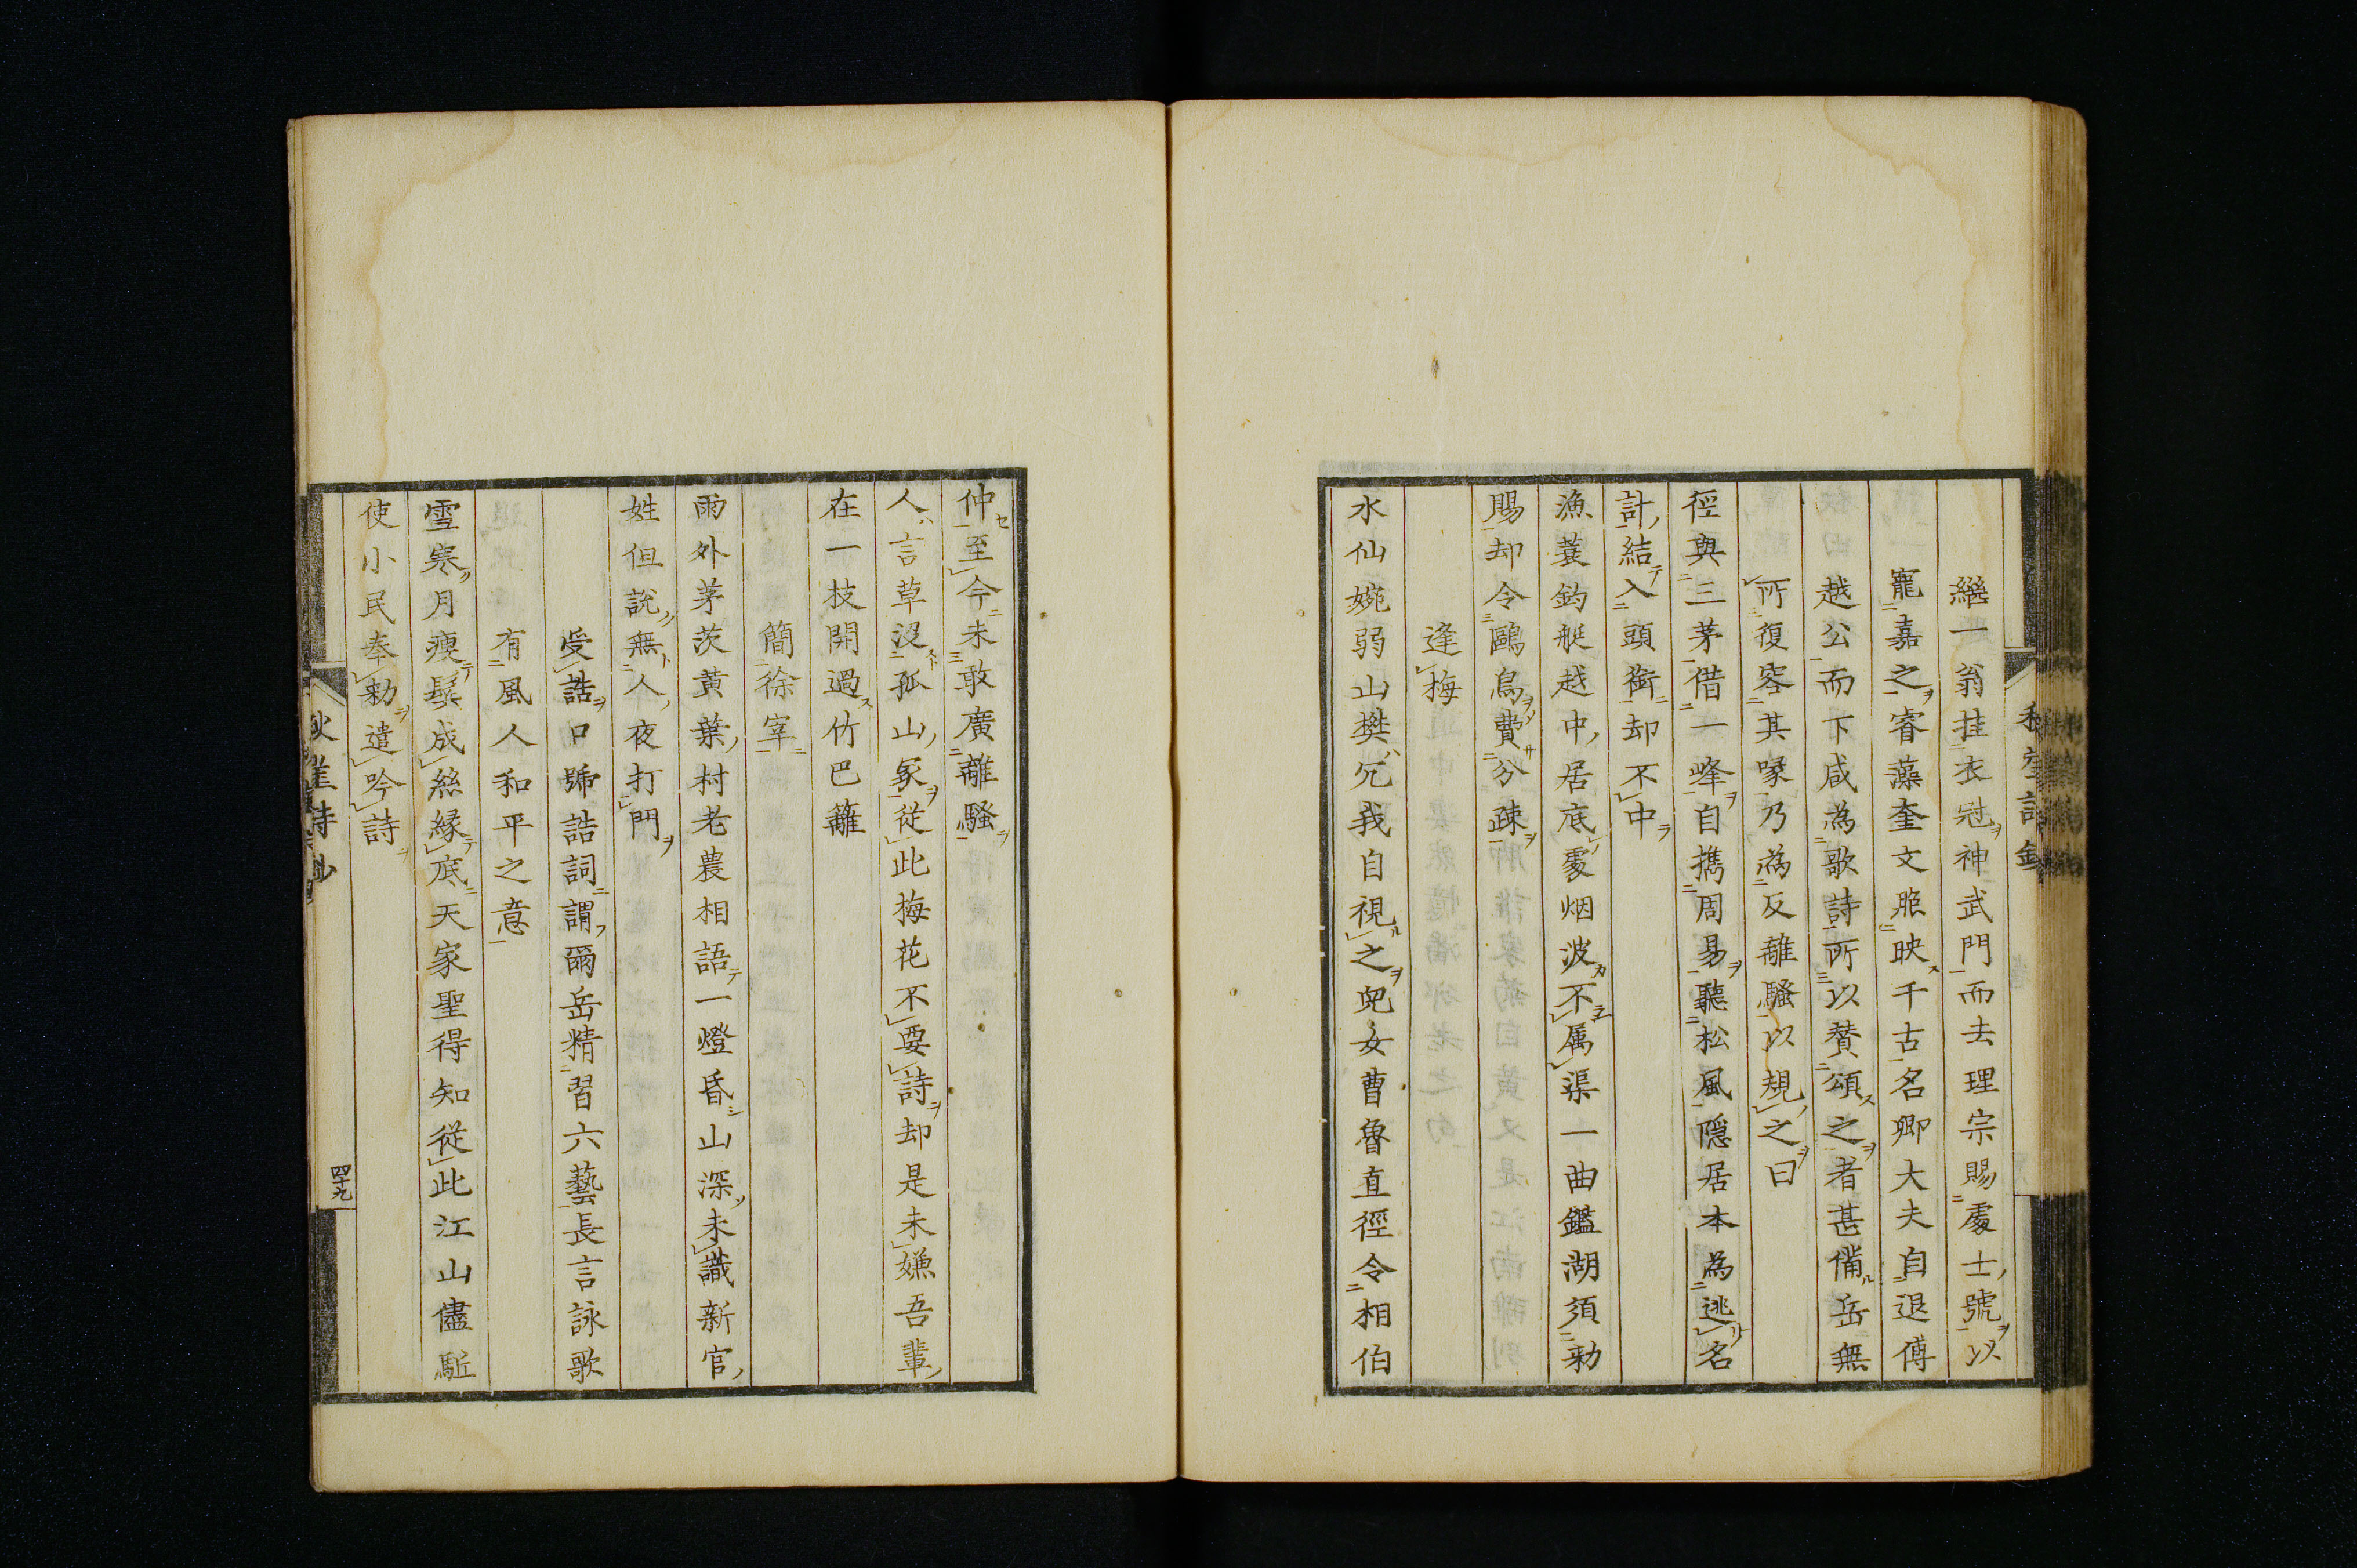 繼一翁挂衣冠神武門而去理宗賜處士號以
寵嘉之睿藻奎文照映千古名卿大夫自退傅
越公而下咸為歌詩所以賛頌之者甚備岳無
所復容其喙乃為反離騷以規之曰
徑與三茅借一峰自携周易聽松風隠居本為逃名
計結入頭銜却不中
漁蓑釣艇越中居底處烟波不属渠一曲鑑湖須勅
賜却令鷗鳥費分疎
逢梅
水仙婉弱山樊兄我自視之兒女曹魯直徑令相伯
仲至今未敢廣離騷
人言草沒孤山冢從此梅花不要詩却是未嫌吾輩
在一枝開過竹巴籬
簡徐宰
雨外茅茨黄葉村老農相語一燈昏山深未識新官
姓但說無人夜打門
受誥口號誥詞謂爾岳精習六藝長言詠歌
有風人和平之意
雪寒月瘦鬂成絲縁底天家聖得知從此江山儘駈
使小民奉勅遣吟詩
秋崖詩鈔
四十九